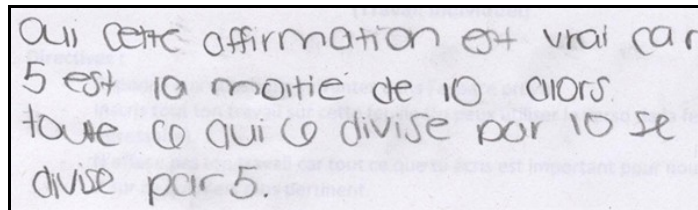 oui cette affirmation est vrai car
5 est la moitié de 10 alors
toute ce qui ce divise par 10 se
divise par 5.